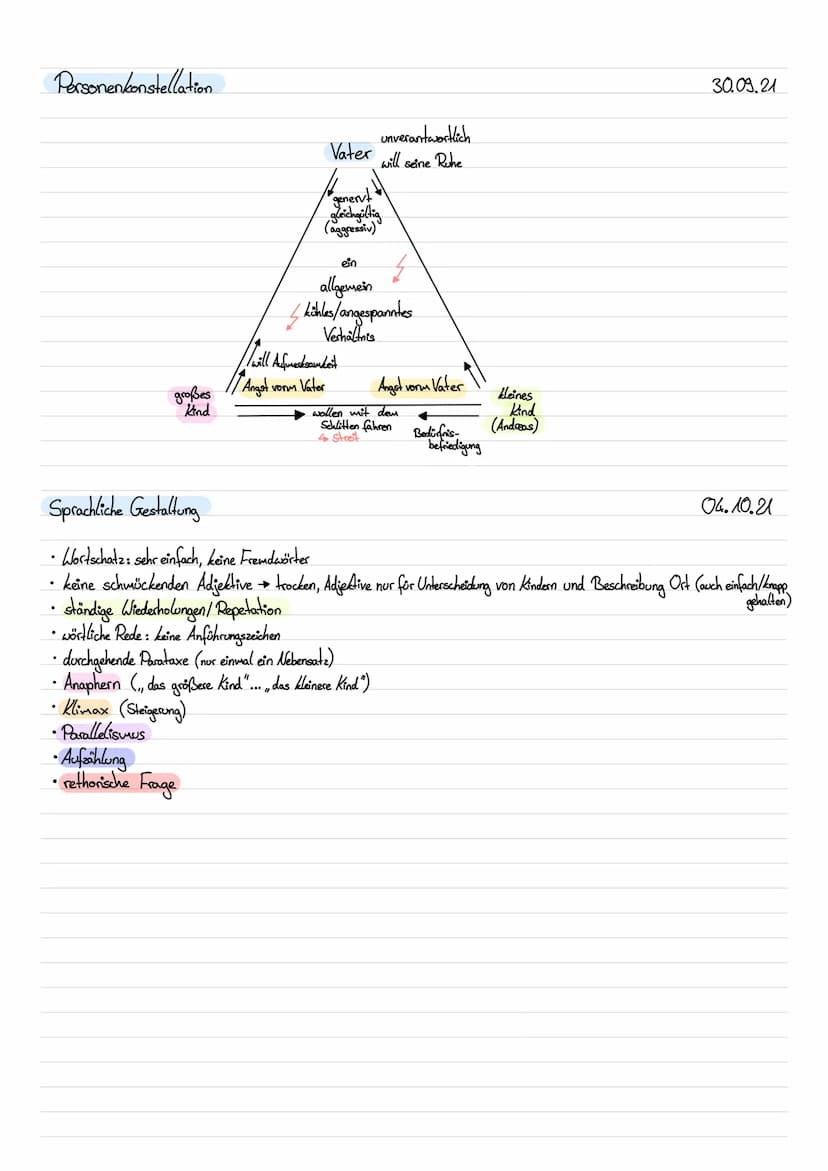 Personenkonstellation 30.09.21
Vater
unverantwortlich
will seine Ruhe
genervt
gleichgültig
(aggressiv)
ein
allgemein
kühles/angespanntes
Verhältnis
will Aufmerksamkeit
Angst vorm Vater
Angst vorm Vater
großes
Kind
kleines
Kind
(Andreas)
wollen mit dem
Schlitten fahren
↳ Streit
Bedürfnis-
befriedigung
Sprachliche Gestaltung 04.10.21
• Wortschatz: sehr einfach, keine Fremdwörter
• keine schmückenden Adjektive → trocken, Adjektive nur für Unterscheidung von Kindern und Beschreibung Ort (auch einfach/knapp
gehalten)
• ständige Wiederholungen/Repetation
• wörtliche Rede: keine Anführungszeichen
• durchgehende Parataxe (nur einmal ein Nebensatz)
• Anaphern („das größere Kind"... „das kleinere Kind")
• Klimax (Steigerung)
• Parallelismus
• Aufzählung
• rethorische Frage